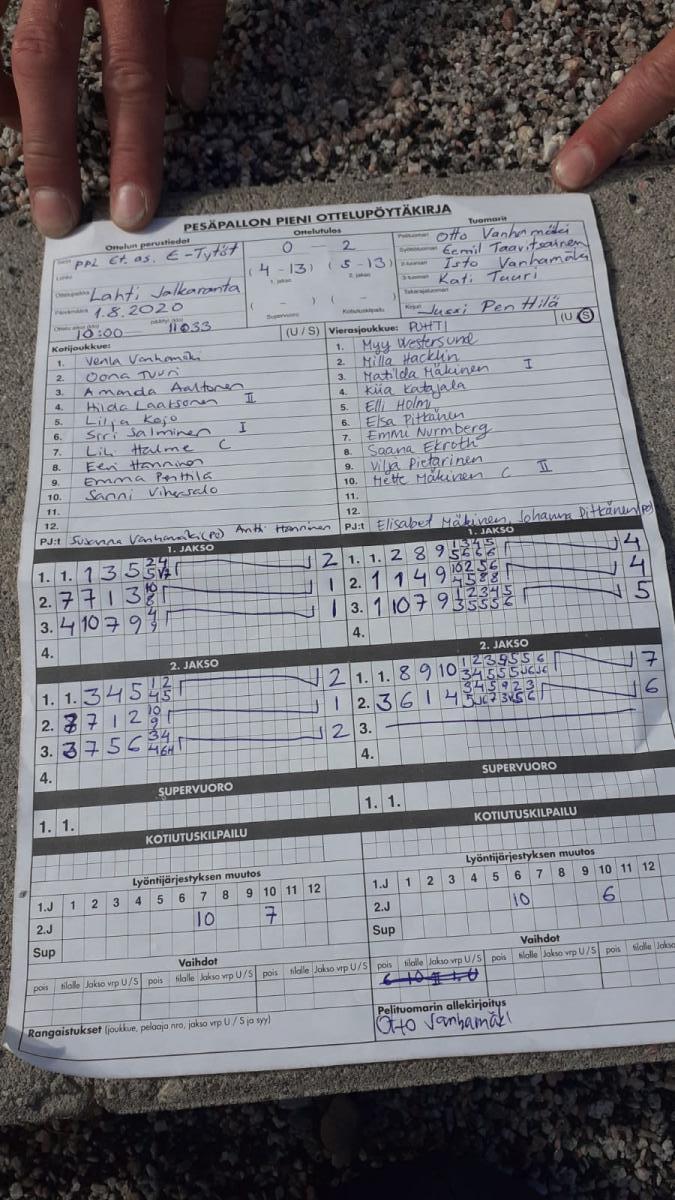 PESÄPALLON PIENI OTTELUPÖYTÄKIRJA
Ottelun perustiedot
Ottelutulos
Tuomarit
PPL Et. as. E-Tytöt
0 – 2
Pelituomari Otto Vanhamäki
Eemil Taavitsainen
(4-13) (5-13)
1. jakso 2. jakso
2-tuomari Isto Vanhamäki
Ottelupaikka Lahti Jalkaranta
3-tuomari Kati Tuuri
Päivämäärä 1.8.2020
( – ) ( – )
Takarajatuomari
10:00
Supervuoro Kotiutuskilpailu
Kirjuri Jussi Penttilä
Kotijoukkue: (U / S)
Vierasjoukkue: PUHTI (U / S)
1. Venla Vanhamäki
2. Oona Tuuri
3. Amanda Aaltonen
4. Hilda Laaksonen II
5. Lilja Kojo
6. Siri Salminen I
7. Lili Halme C
8. Eevi Hänninen
9. Emma Penttilä
10. Sanni Vihersalo
11.
12.
PJ:t Susanna Vanhamäki (PJ) Antti Hänninen
1. Myy Westersund
2. Milla Hacklin
3. Matilda Mäkinen I
4. Kiia Katajala
5. Elli Holmi
6. Elsa Pitkänen
7. Emmi Nurmberg
8. Saana Ekroth
9. Vilja Pietarinen
10. Mette Mäkinen C II
11.
12.
PJ:t Elisabet Mäkinen, Johanna Pitkänen (PJ)
1. JAKSO
1. 1. 1 3 5 2
2. 7 7 1 3 1
3. 4 10 7 9 1
4.
1. JAKSO
1. 1. 2 8 9 4
2. 1 1 4 9 4
3. 1 10 7 9 5
4.
2. JAKSO
1. 1. 3 4 5 2
2. 7 7 1 2 1
3. 3 7 5 6 2
4.
2. JAKSO
1. 1. 8 9 10 7
2. 3 6 1 4 6
3.
4.
SUPERVUORO
1. 1.
SUPERVUORO
1. 1.
KOTIUTUSKILPAILU
KOTIUTUSKILPAILU
Lyöntijärjestyksen muutos
1.J 1 2 3 4 5 6 7 8 9 10 11 12
2.J 10 7
Sup
Lyöntijärjestyksen muutos
1.J 1 2 3 4 5 6 7 8 9 10 11 12
2.J 10 6
Sup
Vaihdot
pois tilalle Jakso vrp U / S pois tilalle Jakso vrp U / S pois tilalle Jakso vrp U / S
Vaihdot
pois tilalle Jakso vrp U / S pois tilalle Jakso vrp U / S pois tilalle Jakso
Rangaistukset (joukkue, pelaaja nro, jakso vrp U / S ja syy)
Pelituomarin allekirjoitus
Otto Vanhamäki